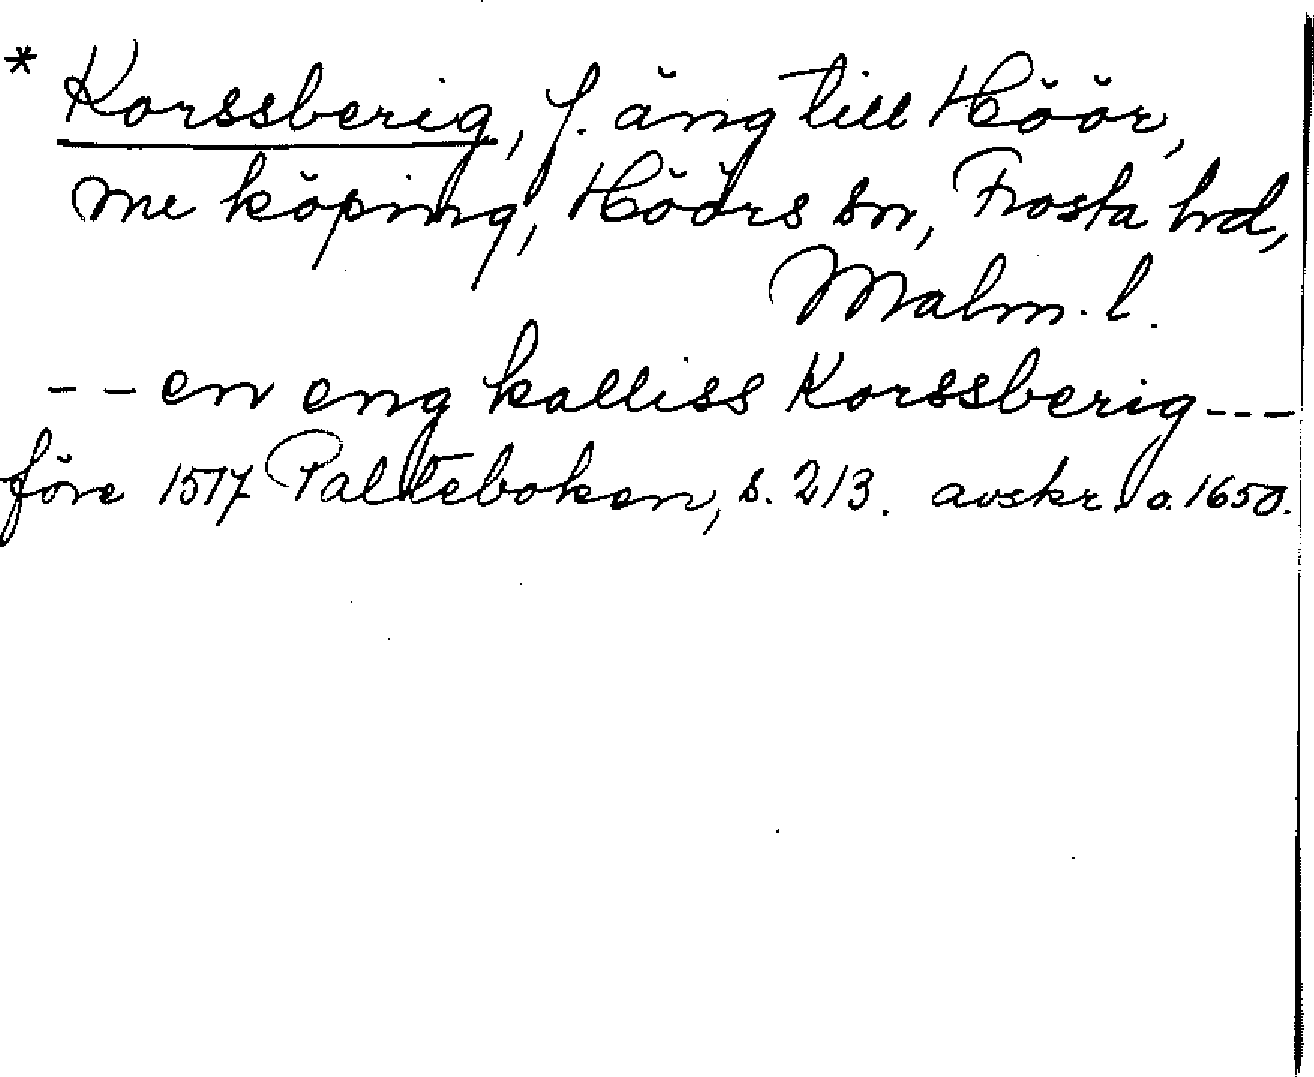 * Korssberig, f. äng till Höör,
me köping, Höörs sn, Frosta hd,
Malm. l.
-- en eng kalliss Korssberig ---
före 1517 Palteboken, s. 213. avskr. o. 1650.